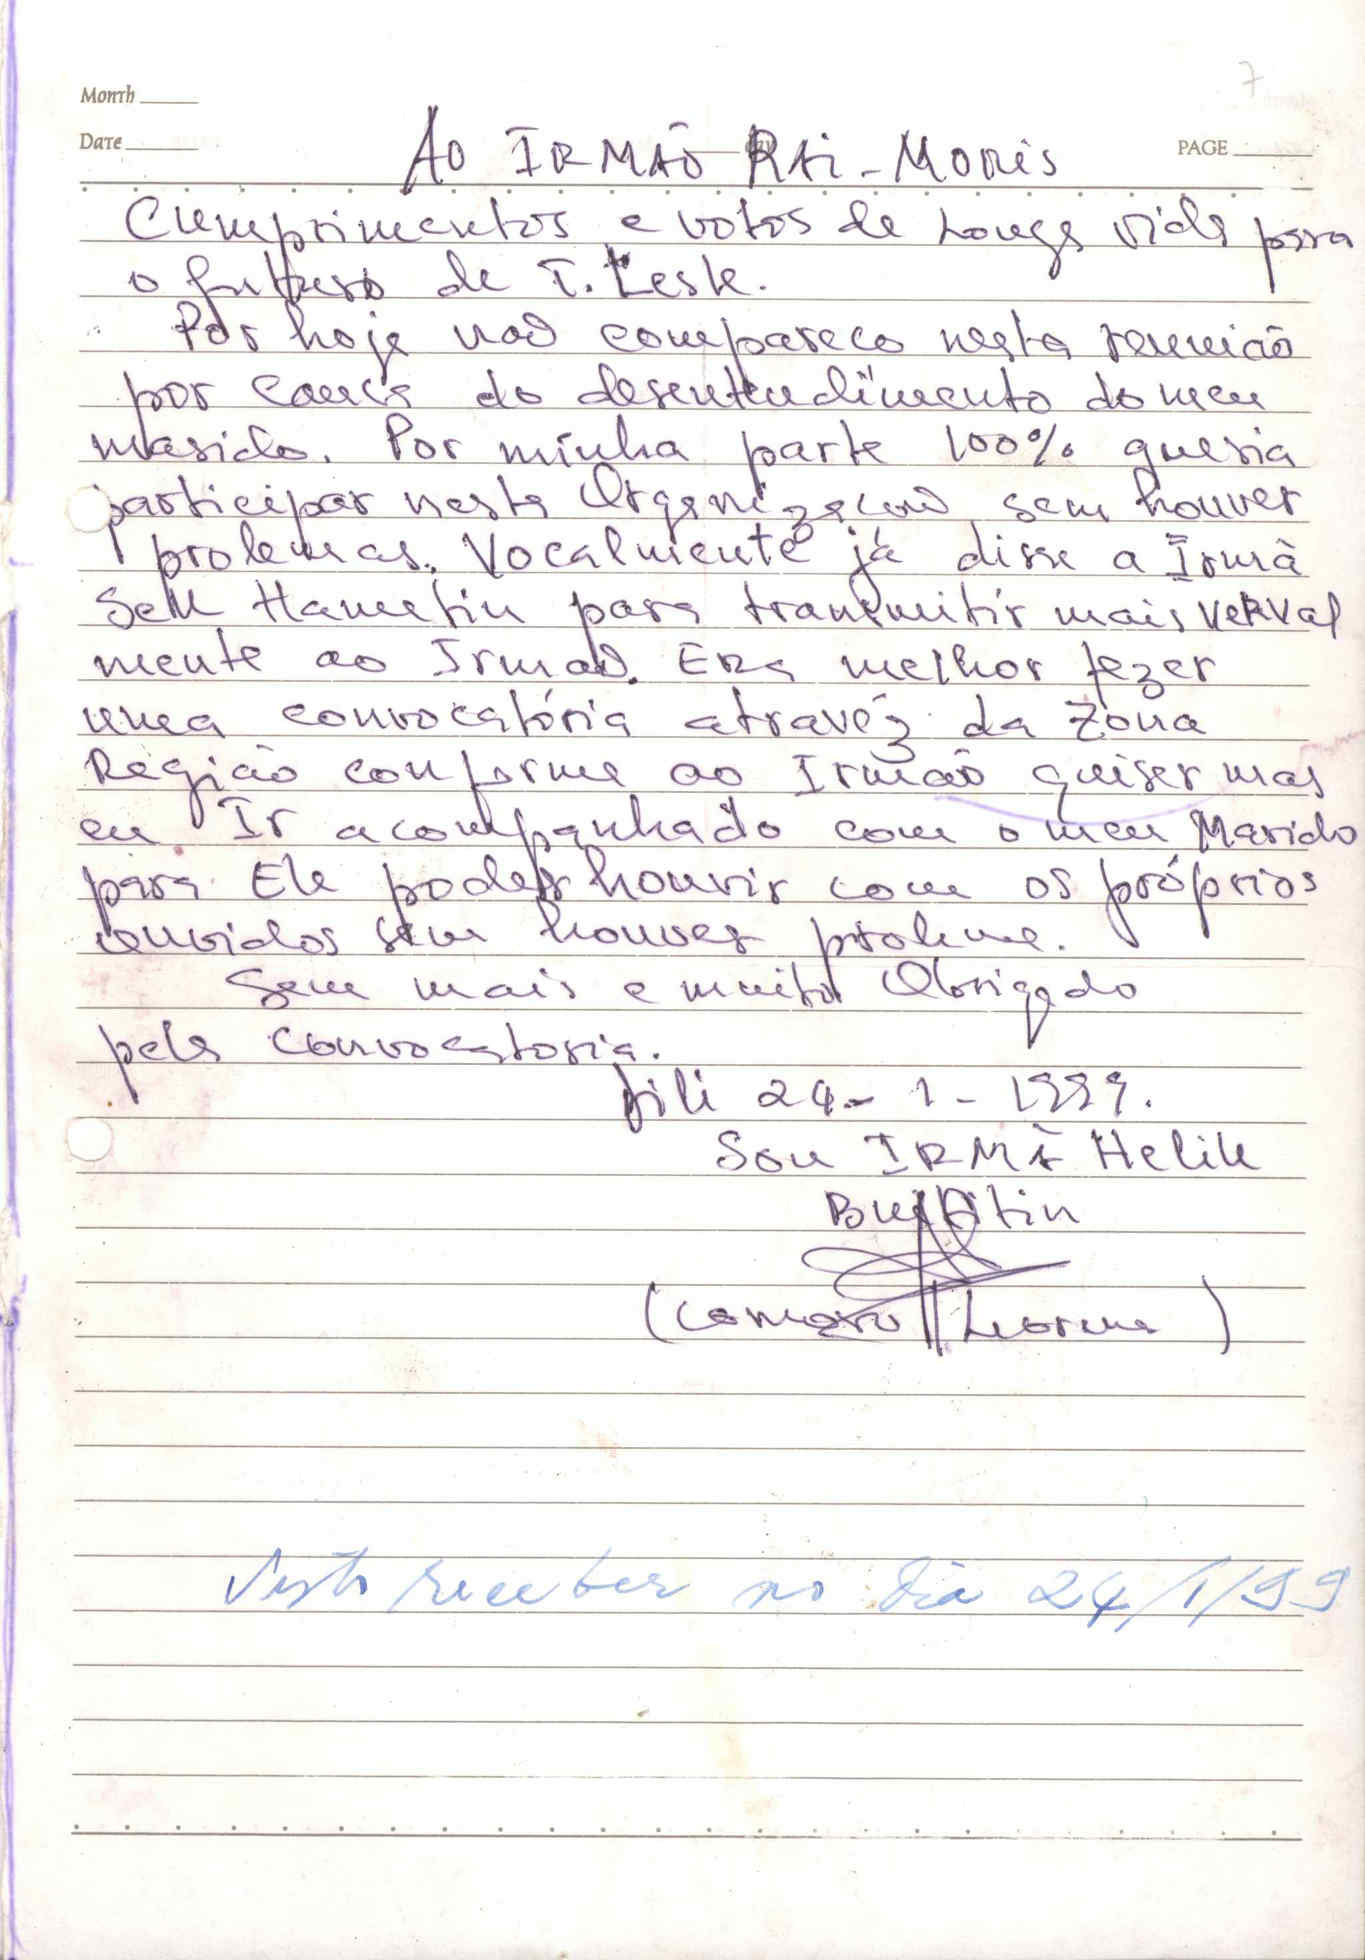 7
Month
Date
PAGE
Ao IRMÃO RAi-MORis
Cumprimentos e votos de Longa vida para
o futuro de T. Leste.
Por hoje naõ compareco nesta reunião
por causa do desentendimento do meu
marido. Por minha parte 100% queria
participar nesta Organizacaõ sem houver
prolemas. Vocalmente já disse a Irmã
Seu Hametin para transmitir mais VERVal
mente ao Irmaõ. ERa melhor fazer
uma convocatória atravéz da Zona
Região conforme ao Irmão quiser mas
eu Ir acompanhado com o meu Marido
para Ele poder houvir com os próprios
ouvidos sem houver proleme.
Sem mais e muito Obrigado
pela convocatoria.
Dili 24-1-1999.
Sou IRMÃ Helik
Bui
(            )
receber no dia 24/1/99